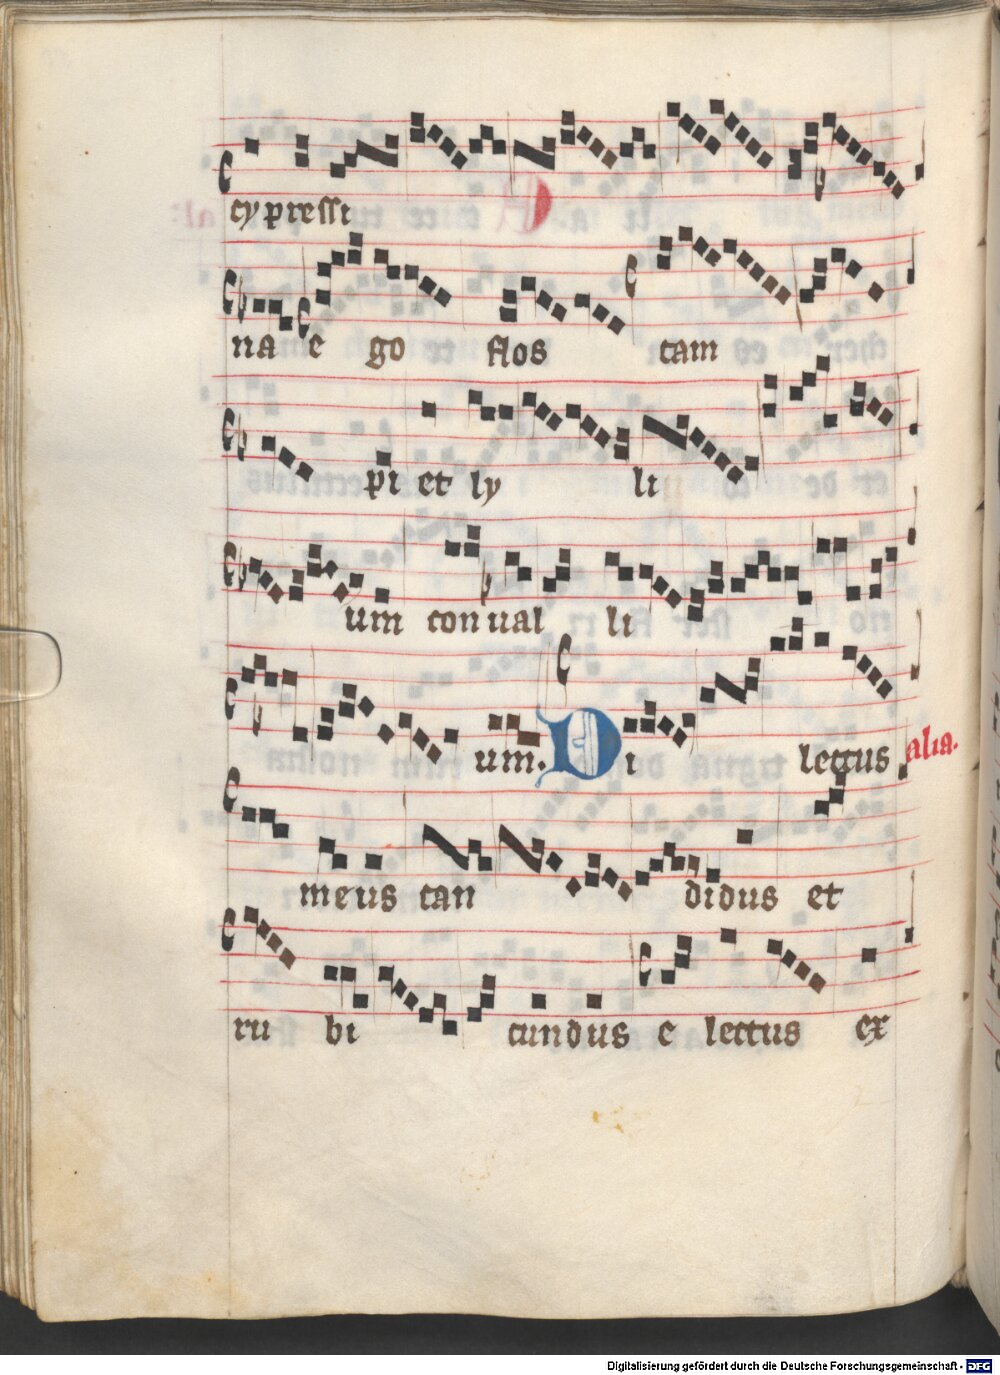 cypressi
na e go flos cam
pi et ly li
um conual li
um. Di lectus alia.
meus can didus et
ru bi cundus e lectus ex
Digitalisierung gefördert durch die Deutsche Forschungsgemeinschaft - DFG